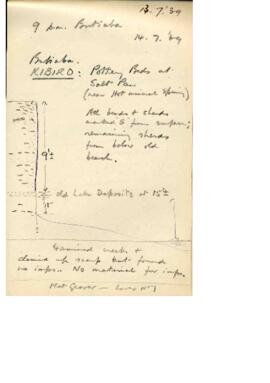 13.7.39
9 p.m. Butiaba
14.7.39
Butiaba.
KIBIRO: Pottery Beds at
Salt Pans
(near Hot mineral Spring)
All beads & sherds
marked S from surface;
remaining sherds
from below old
beach.
9'
old Lake Deposits at 15'
15'
Examined creeks &
climbed up scarp but found
no imps. No material for imps.
Met Grover —